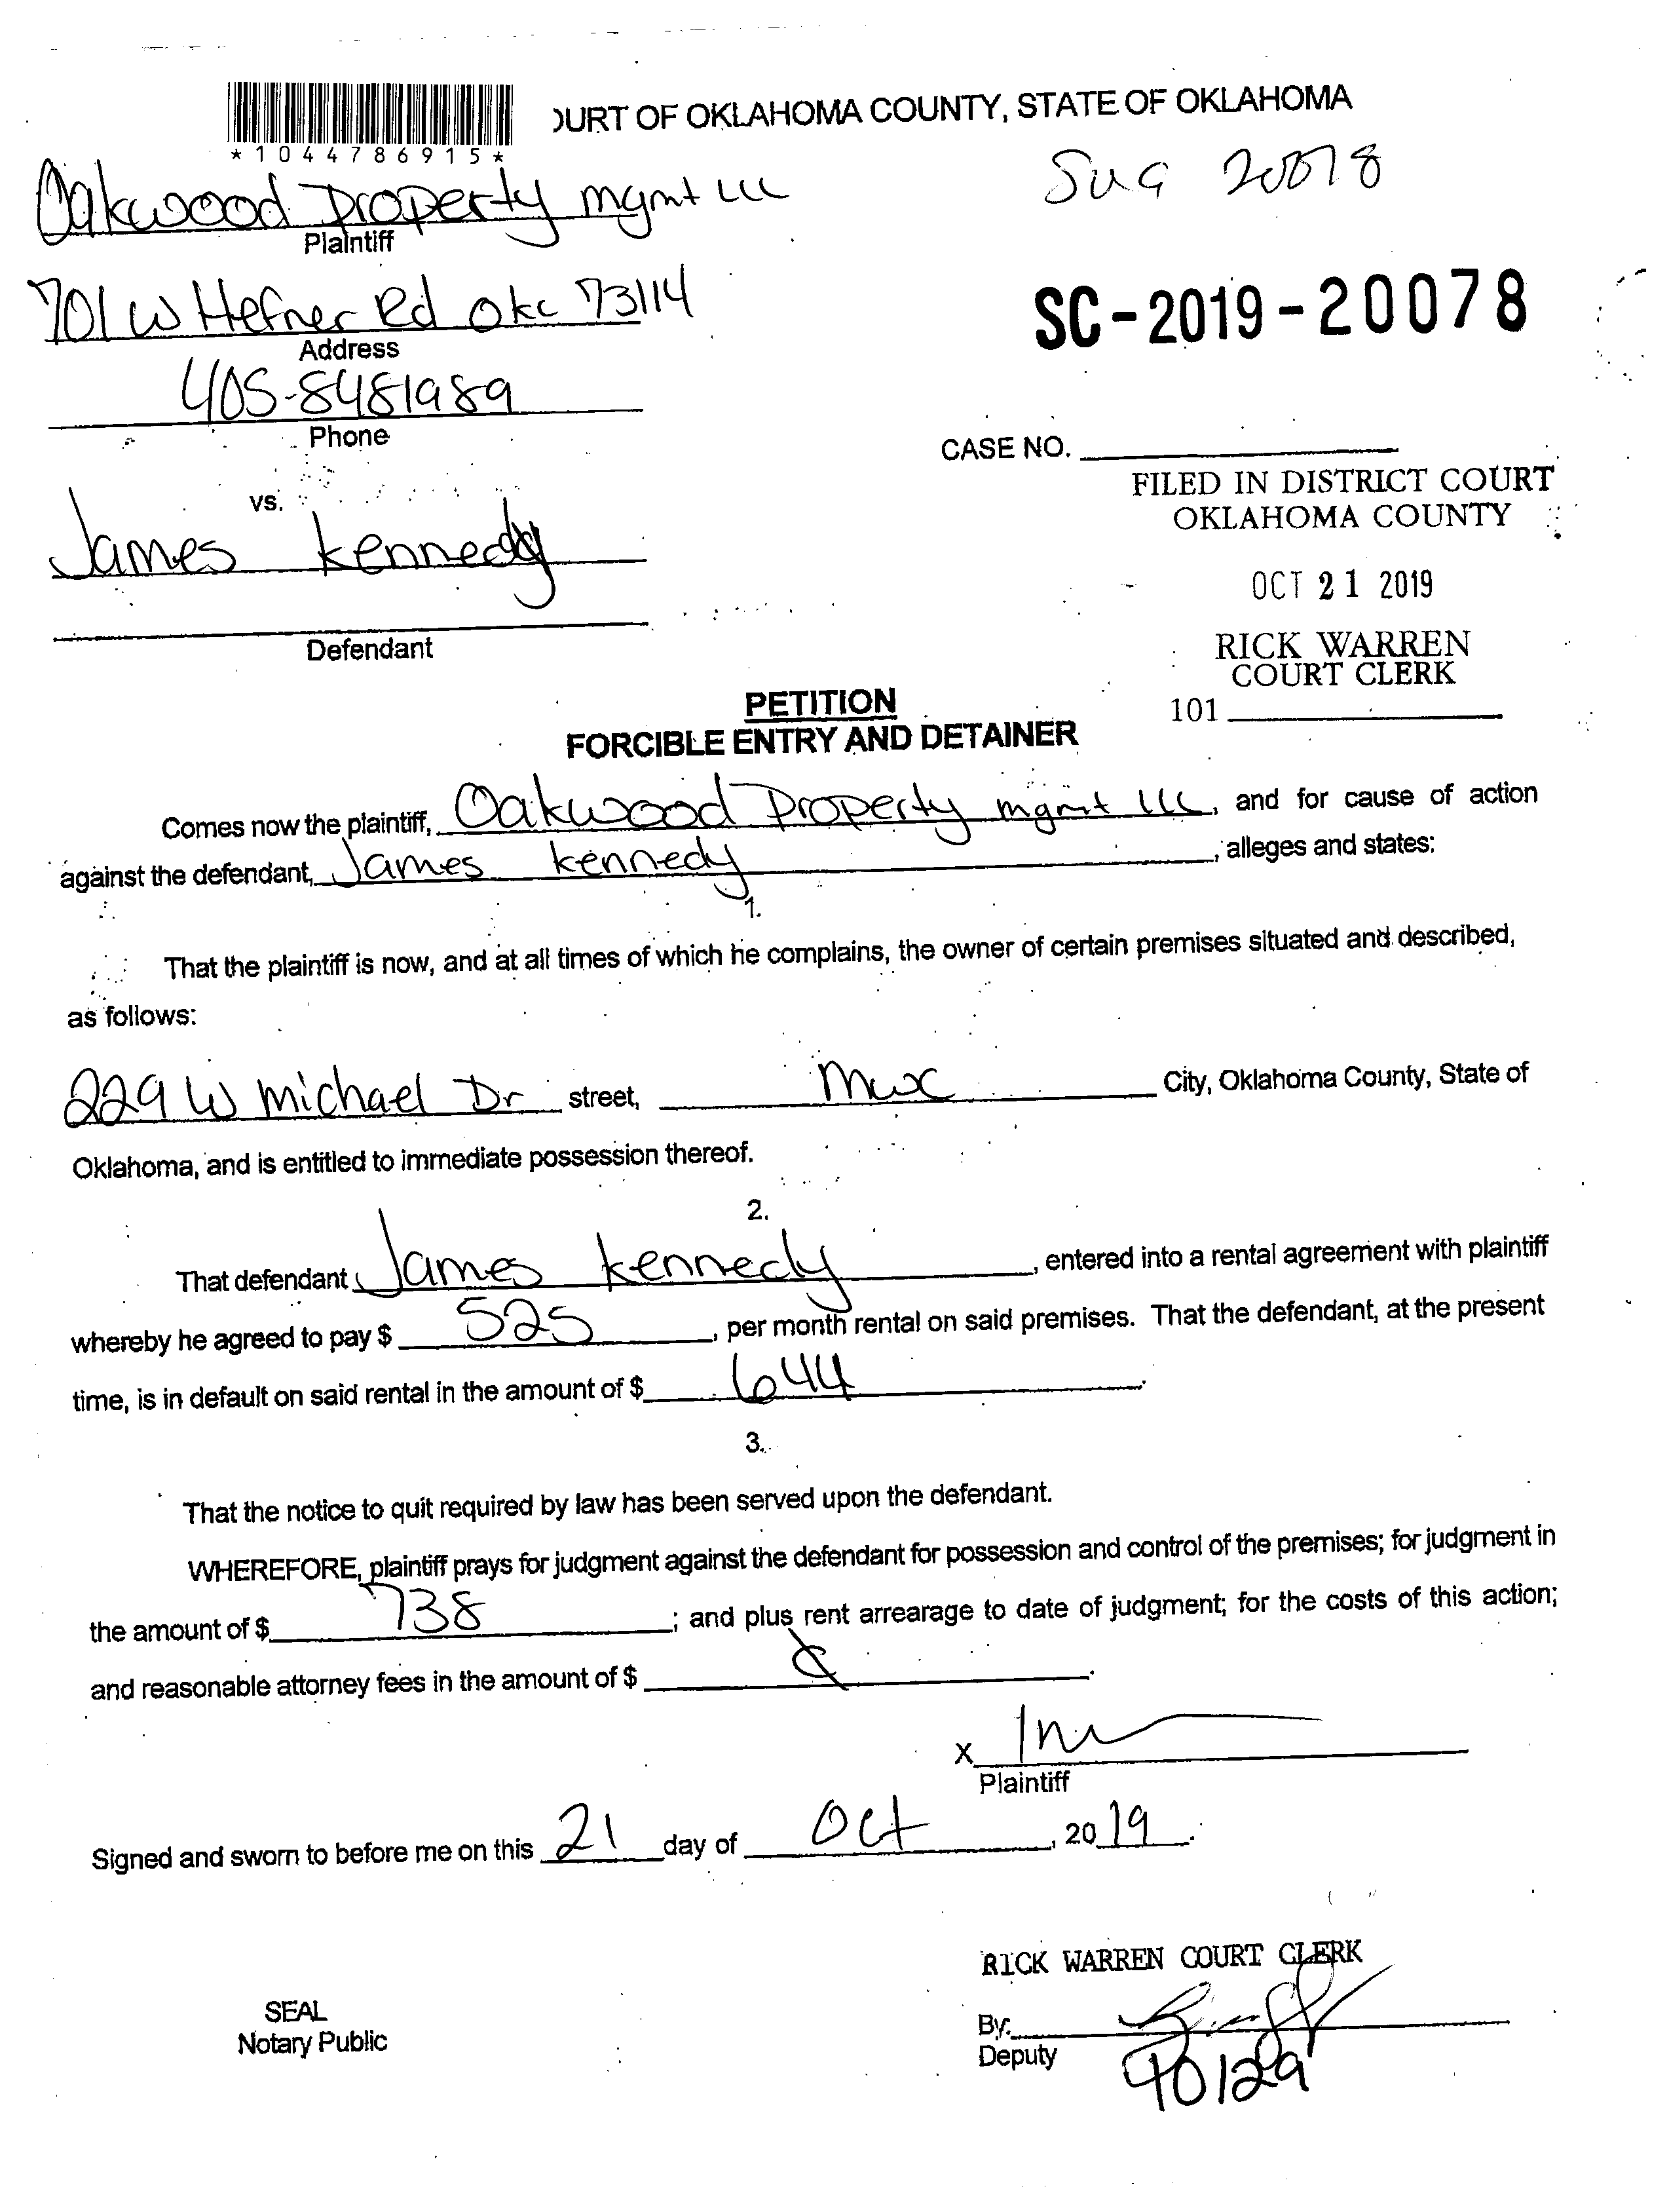 *1044786915*
OURT OF OKLAHOMA COUNTY, STATE OF OKLAHOMA
Oakwood Property mgmt LLC
20078
Plaintiff
701 W Hefner Rd OKC 73114
SC-2019-20078
Address
405-8481989
Phone
CASE NO.
vs.
FILED IN DISTRICT COURT
OKLAHOMA COUNTY
James Kennedy
OCT 21 2019
Defendant
RICK WARREN
COURT CLERK
101
PETITION
FORCIBLE ENTRY AND DETAINER
Comes now the plaintiff, Oakwood Property mgmt LLC, and for cause of action
against the defendant, James Kennedy, alleges and states:
1.
That the plaintiff is now, and at all times of which he complains, the owner of certain premises situated and described,
as follows:
229 W Michael Dr street, mwc City, Oklahoma County, State of
Oklahoma, and is entitled to immediate possession thereof.
2.
That defendant, James Kennedy, entered into a rental agreement with plaintiff
whereby he agreed to pay $ 525, per month rental on said premises. That the defendant, at the present
time, is in default on said rental in the amount of $ 644.
3.
That the notice to quit required by law has been served upon the defendant.
WHEREFORE, plaintiff prays for judgment against the defendant for possession and control of the premises; for judgment in
the amount of $ 738; and plus rent arrearage to date of judgment; for the costs of this action;
and reasonable attorney fees in the amount of $ .
X
Plaintiff
Signed and sworn to before me on this 21 day of Oct, 2019.
RICK WARREN COURT CLERK
SEAL
Notary Public
By:
Deputy
40129